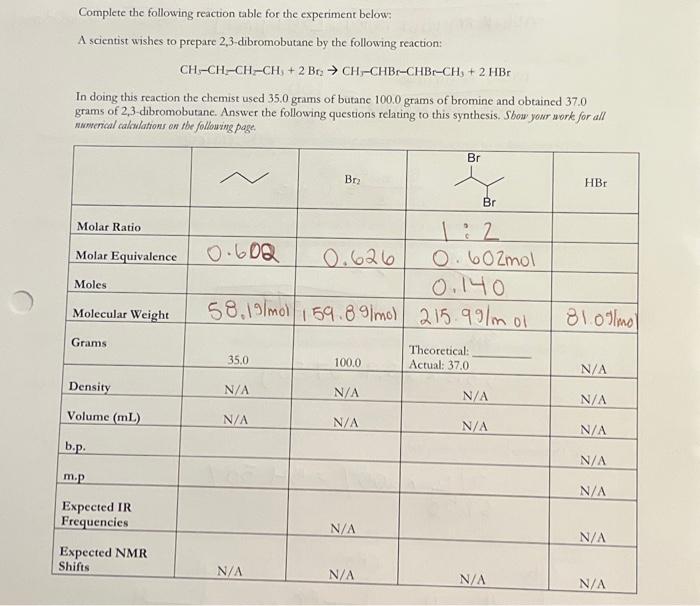 Complete the following reaction table for the experiment below:
A scientist wishes to prepare 2,3-dibromobutane by the following reaction:
CH₃-CH₂-CH₂-CH₃ + 2 Br₂ → CH₃-CHBr-CHBr-CH₃ + 2 HBr
In doing this reaction the chemist used 35.0 grams of butane 100.0 grams of bromine and obtained 37.0
grams of 2,3-dibromobutane. Answer the following questions relating to this synthesis. Show your work for all
numerical calculations on the following page.
Br₂ Br Br HBr
Molar Ratio 1 : 2
Molar Equivalence 0.602 0.626 0.602mol
Moles 0.140
Molecular Weight 58.1g/mol 159.8g/mol 215.9g/mol 81.0g/mol
Grams 35.0 100.0 Theoretical: ______
Actual: 37.0 N/A
Density N/A N/A N/A N/A
Volume (mL) N/A N/A N/A N/A
b.p. N/A
m.p N/A
Expected IR
Frequencies N/A N/A
Expected NMR
Shifts N/A N/A N/A N/A